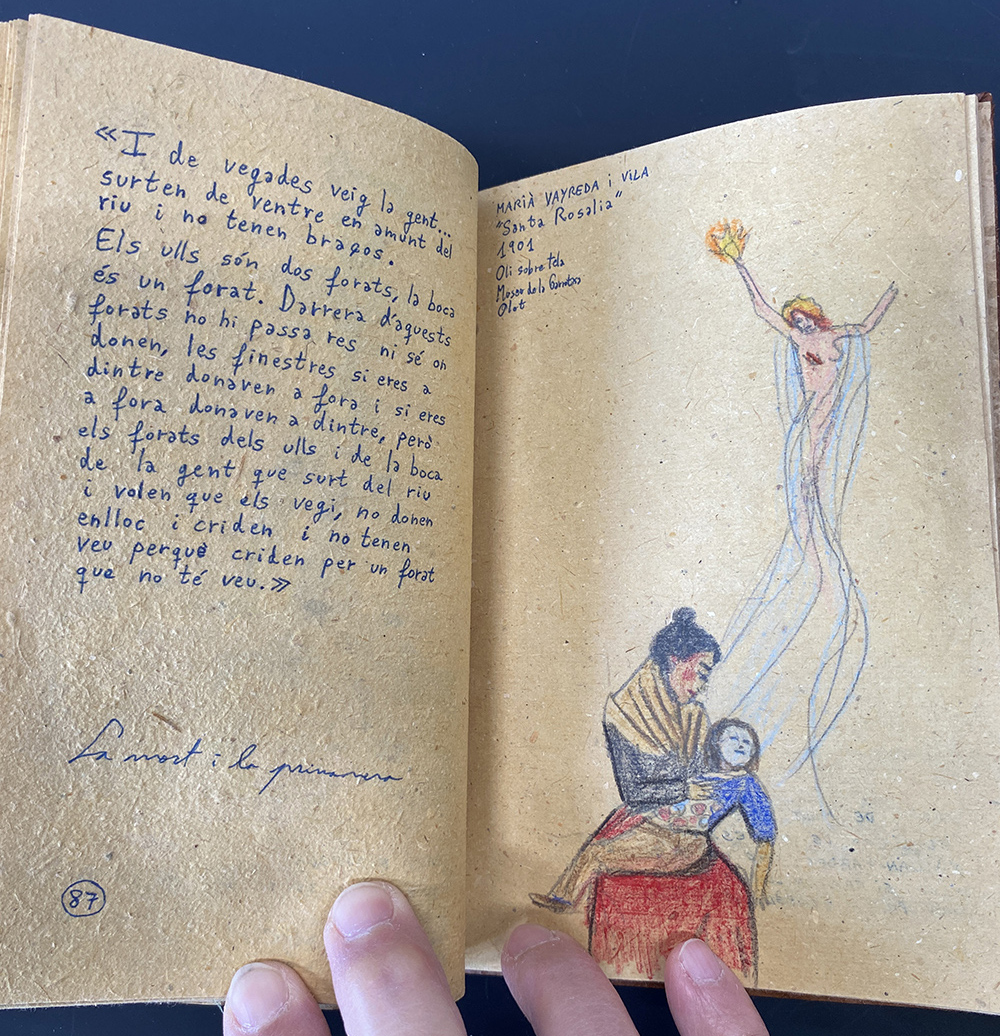 «I de vegades veig la gent...
surten de ventre en amunt del
riu i no tenen braços.
Els ulls són dos forats, la boca
és un forat. Darrera d'aquests
forats no hi passa res ni sé on
donen, les finestres si eres a
dintre donaven a fora i si eres
a fora donaven a dintre, però
els forats dels ulls i de la boca
de la gent que surt del riu
i volen que els vegi, no donen
enlloc i criden i no tenen
veu perquè criden per un forat
que no té veu.»
La mort i la primavera
87
MARIÀ VAYREDA i VILA
"Santa Rosalia"
1901
Oli sobre tela
Museu de la Garrotxa
Olot